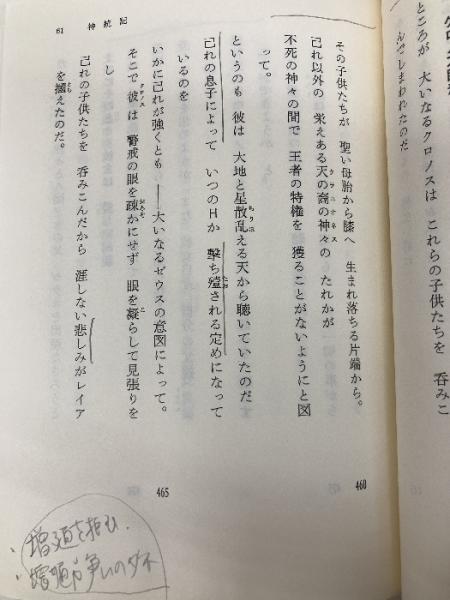 ところが 大いなるクロノスは これらの子供たちを 呑みこ
んでしまわれたのだ
61 神統記
その子供たちが 聖い母胎から膝へ 生まれ落ちる片端から。
己れ以外の 栄えある天の裔の神々の たれかが
ウラニオネス
不死の神々の間で 王者の特権を 獲ることがないようにと図
って。
というのも 彼は 大地と星散乱える天から聴いていたのだ
ちりば
己れの息子によって いつの日か 撃ち殪される定めになって
たお
いるのを
いかに己れが強くとも――大いなるゼウスの意図によって。
そこで彼は 警戒の眼を疎かにせず 眼を凝らして見張りを
クロノス おろそ こ
し
己れの子供たちを 呑みこんだから 涯しない悲しみがレイア
を摑えたのだ。
460
465
・増
・増 争いのタネ